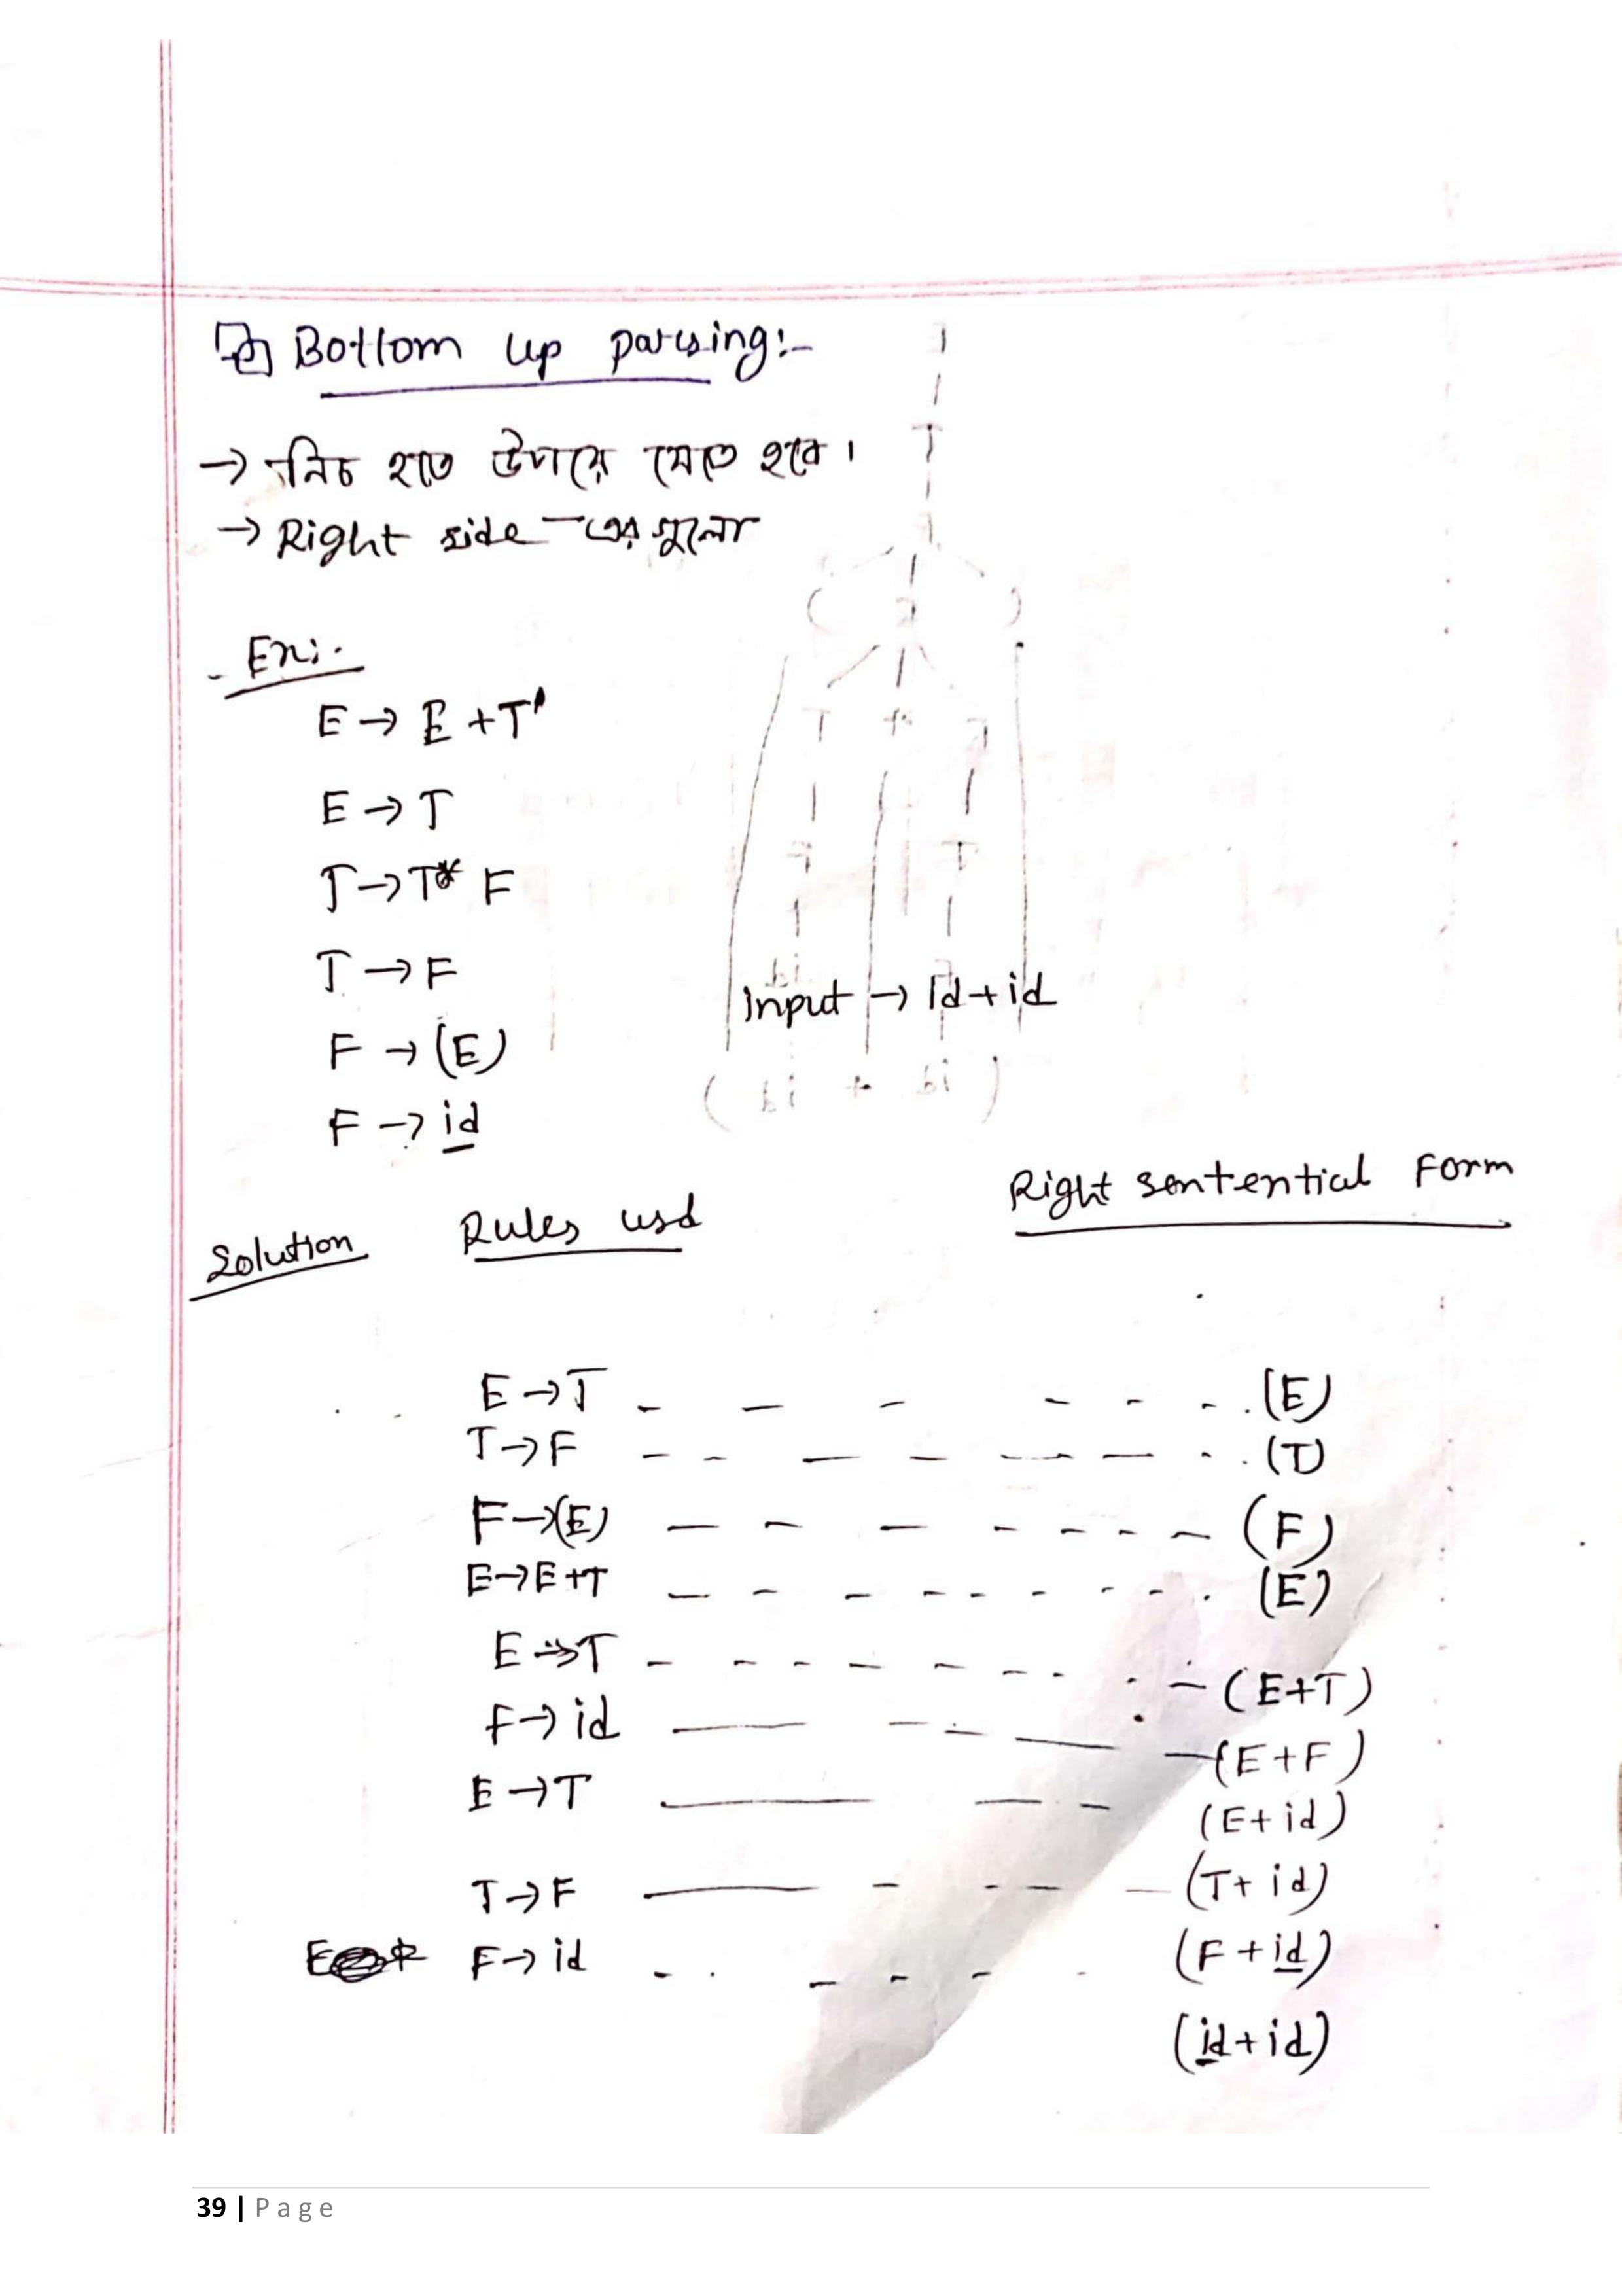 Bottom up parsing:-
→ নিচ হতে উপরে যেতে হবে।
→ Right side - এর গুলো
Ex:.
E → E + T'
E → T
T → T* F
T → F
Input → Id + id
F → (E)
F → id
Solution Rules usd Right sentential Form
E → T - - - - - - (E)
T → F - - - - - - - (T)
F → (E) - - - - - - - (F)
E → E + T - - - - - - - - - (E)
E → T - - - - - - - - - (E+T)
F → id - - - - - (E+F)
E → T - - - (E+id)
T → F - - - - - (T+ id)
F → id - - - - - - (F + id)
(id + id)
39 | Page